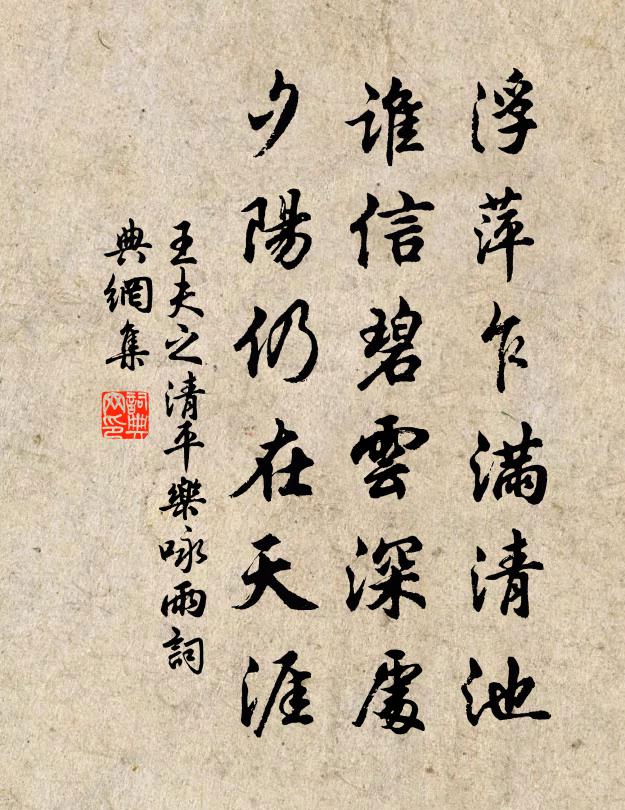 浮萍乍滿清池
誰信碧雲深處
夕陽仍在天涯
王夫之清平樂咏雨詞
典網集
詞典網印